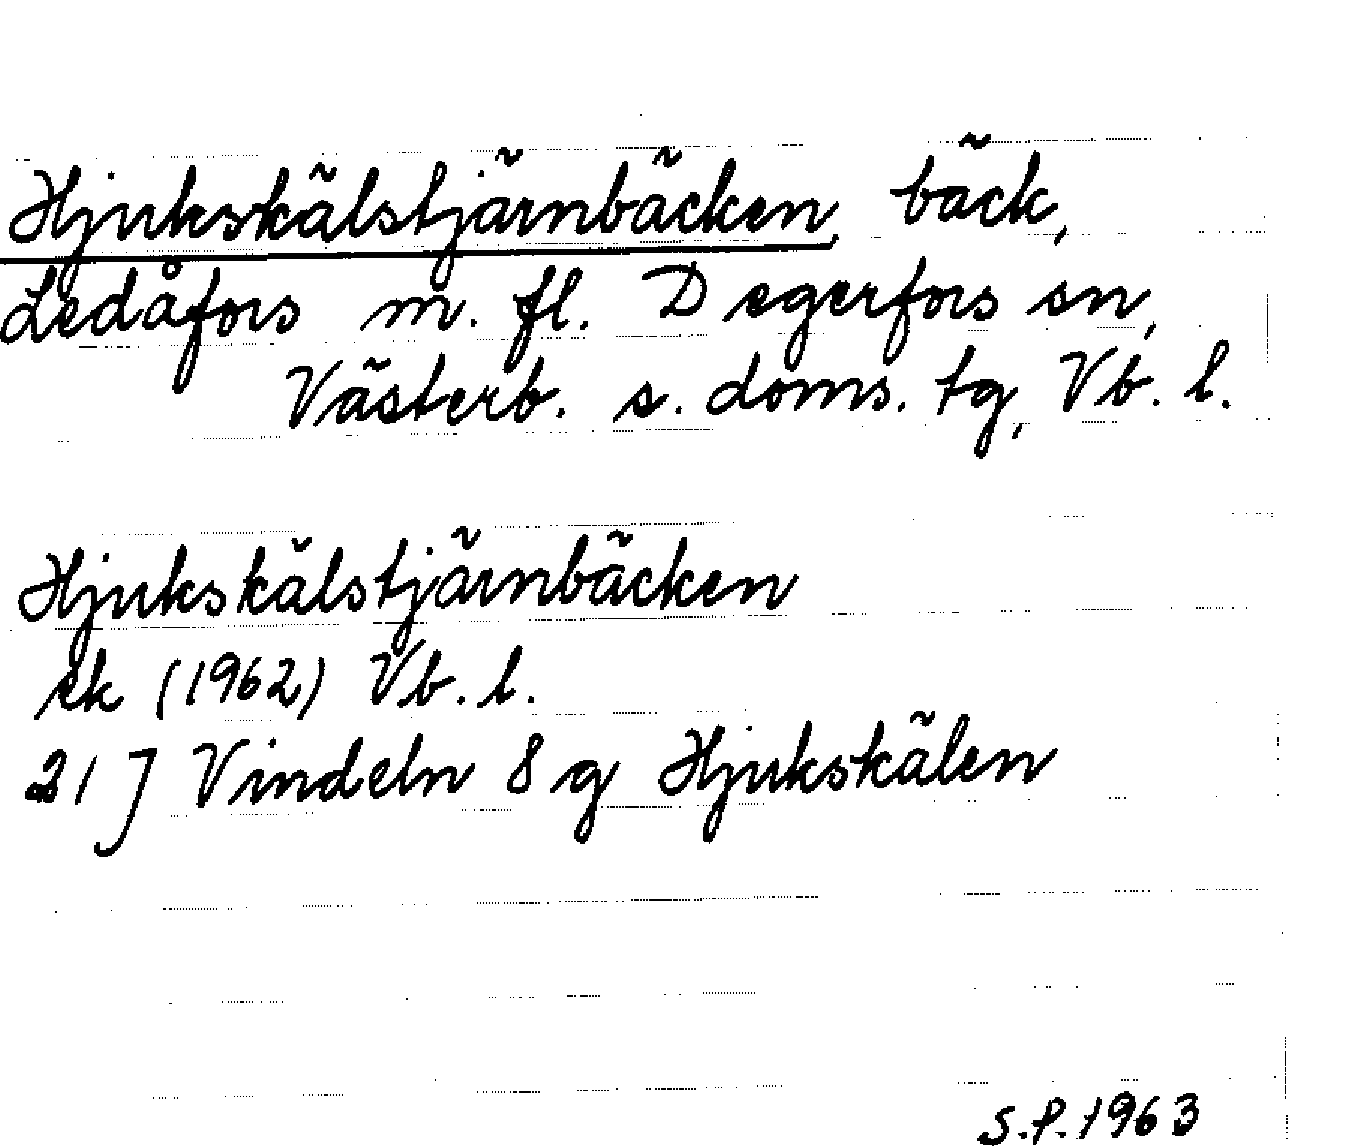 Hjukskälstjärnbäcken, bäck,
Ledåfors m. fl. Degerfors sn,
Västerb. s. doms. tg, Vb. l.
Hjukskälstjärnbäcken
ek (1962) Vb. l.
21 J Vindeln 8 g Hjukskälen
S.P. 1963